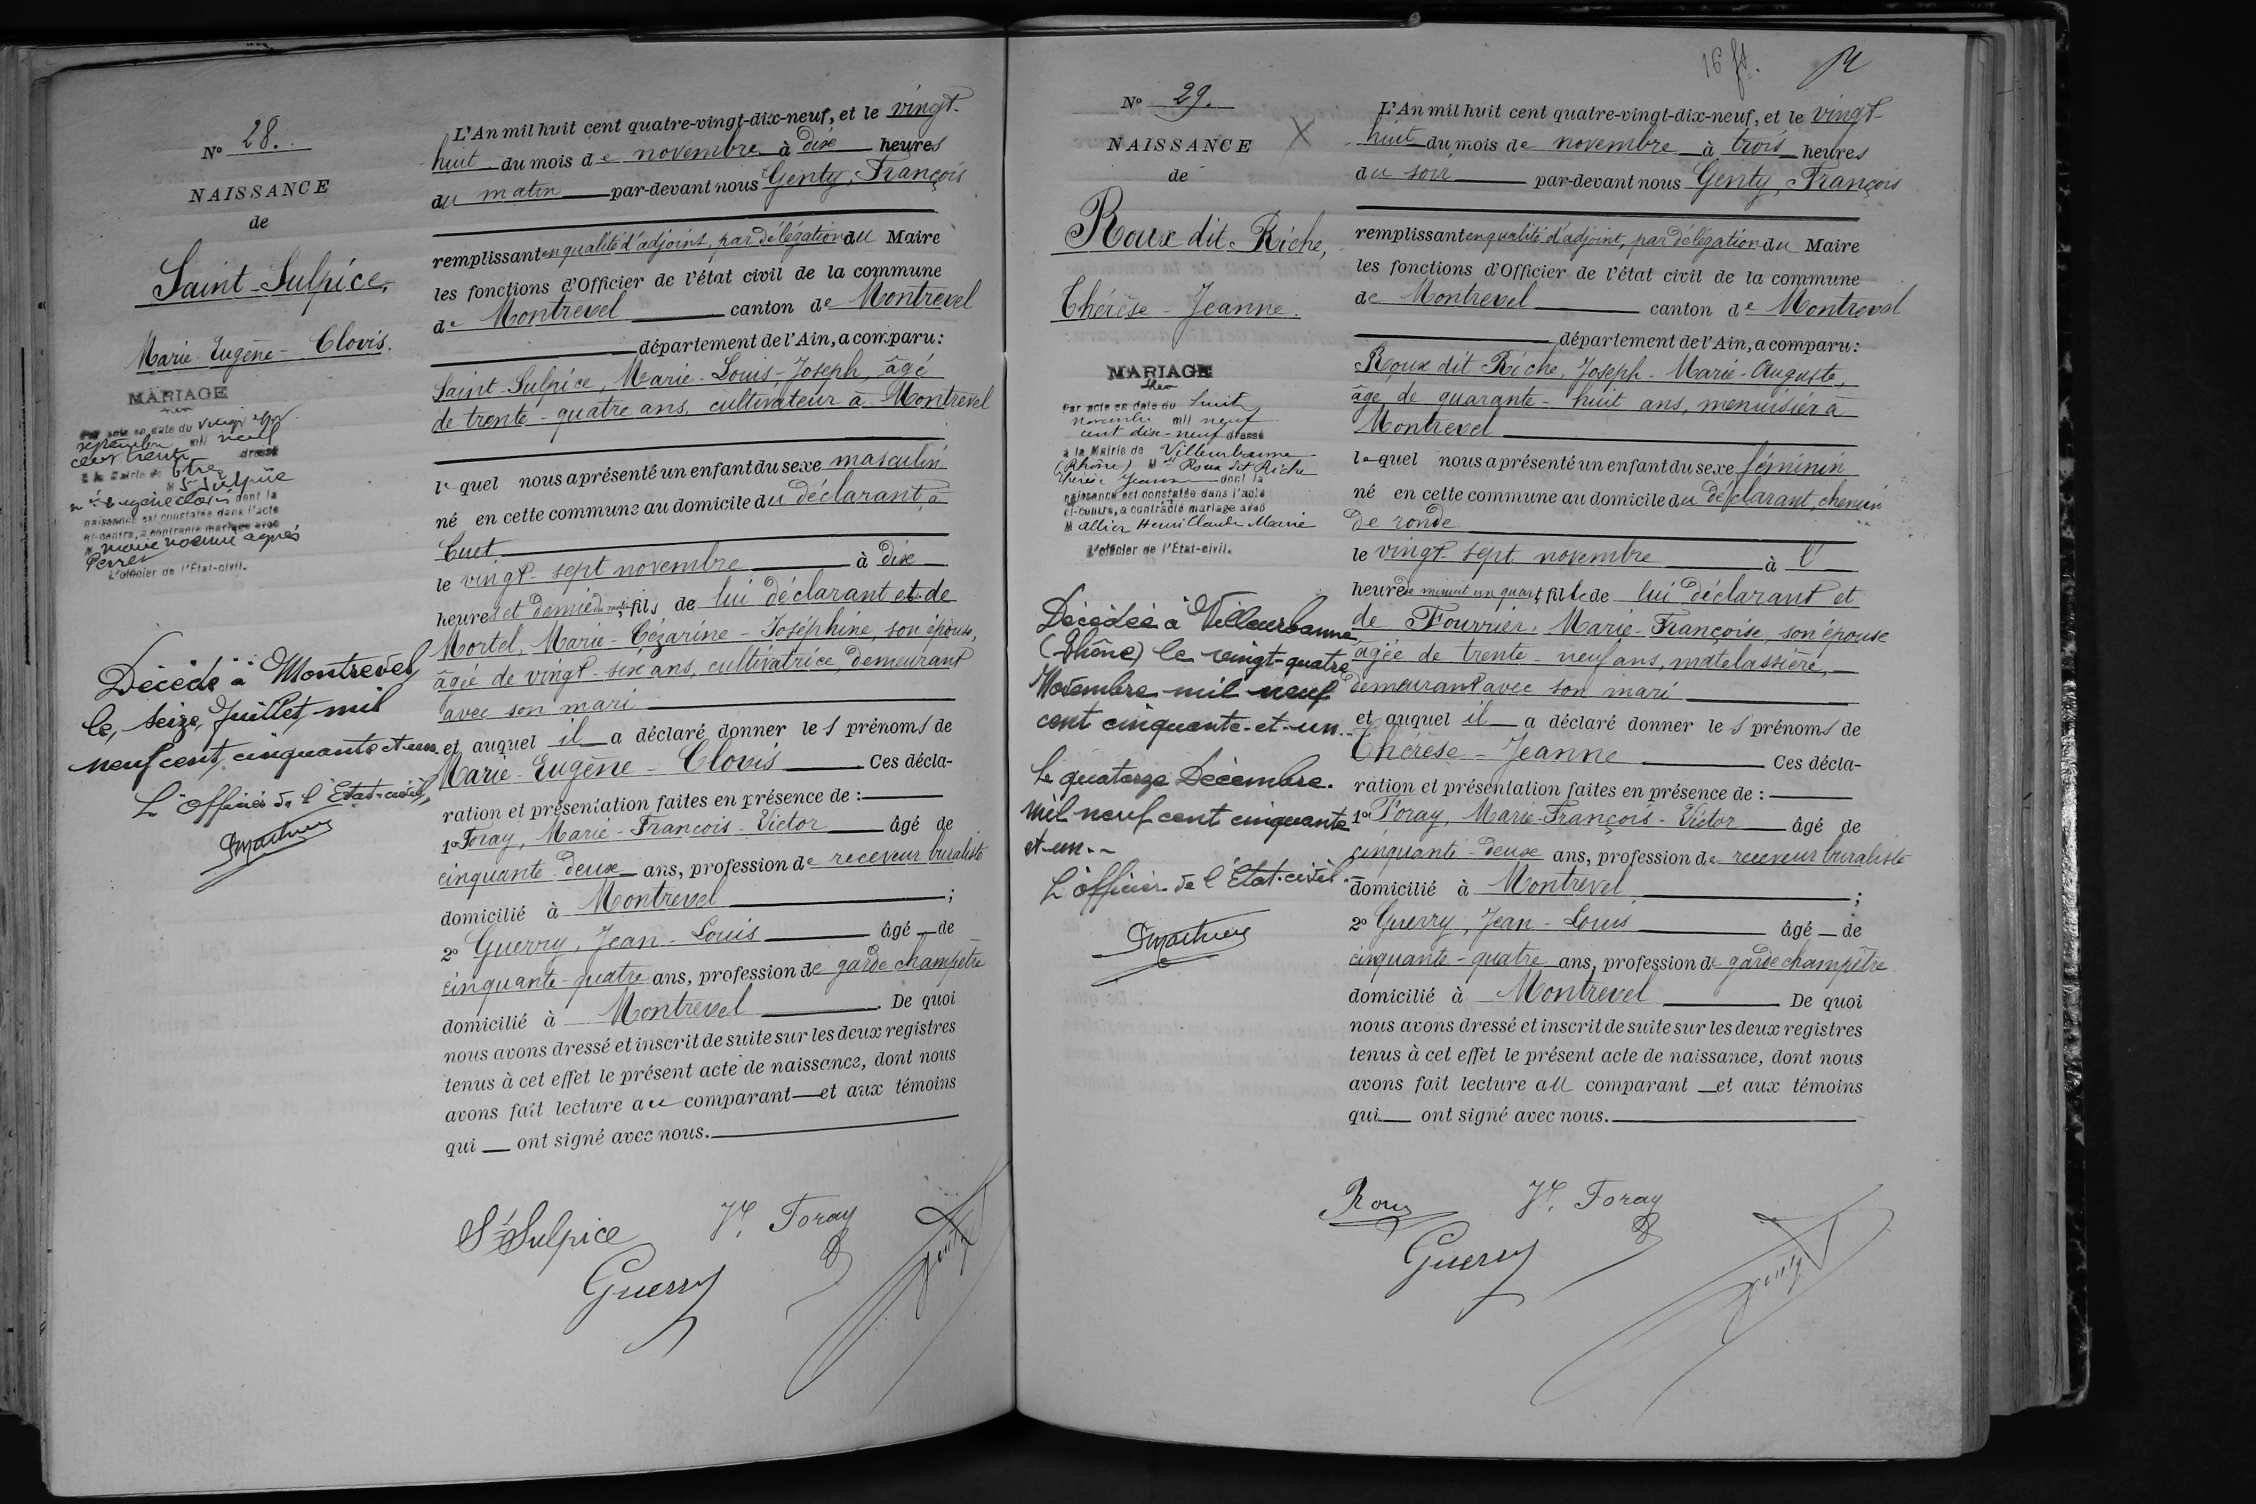 N° 28.
NAISSANCE
de
Saint-Sulpice,
Marie-Eugène-Clovis.
MARIAGE
Par acte en date du vingt
septembre mil neuf
cent trente dressé
à la Mairie de
M St Sulpice
Mie Eugène Clovis dont la
naissance est constatée dans l'acte
ci-contre, a contracté mariage avec
M Marie Noémie Agnès
Perret
L'officier de l'État-civil.
Décédé à Montrevel
le, seize Juillet, mil
neuf cent, cinquante et un.
L'officier de l'Etat-civil,
L'An mil huit cent quatre-vingt-dix-neuf, et le vingt-
huit du mois de novembre à dix heures
du matin par-devant nous Genty, François
remplissant en qualité d'adjoint, par délégation du Maire
les fonctions d'Officier de l'état civil de la commune
de Montrevel canton de Montrevel
département de l'Ain, a comparu:
Saint-Sulpice, Marie-Louis-Joseph, âgé
de trente-quatre ans, cultivateur à Montrevel
lequel nous a présenté un enfant du sexe masculin
né en cette commune au domicile du déclarant, à
Cuet
le vingt-sept novembre à dix
heures et demie du matin, fils de lui déclarant et de
Mortel, Marie-Cézarine-Joséphine, son épouse,
âgée de vingt-six ans, cultivatrice, demeurant
avec son mari
et auquel il a déclaré donner les prénoms de
Marie-Eugène-Clovis Ces décla-
ration et présentation faites en présence de :
1° Foray, Marie-François-Victor âgé de
cinquante-deux ans, profession de receveur buraliste
domicilié à Montrevel ;
2° Guerry, Jean-Louis âgé de
cinquante-quatre ans, profession de garde champêtre
domicilié à Montrevel De quoi
nous avons dressé et inscrit de suite sur les deux registres
tenus à cet effet le présent acte de naissance, dont nous
avons fait lecture au comparant et aux témoins
qui ont signé avec nous.
St Sulpice Vr. Foray
Guerry Genty
16 ft.
N° 29.
NAISSANCE X
de
Roux dit Riche,
Thérèse-Jeanne.
MARIAGE
Par acte en date du huit
novembre mil neuf
cent dix-neuf dressé
à la Mairie de Villeurbanne
(Rhône) Mlle Roux dit Riche
Thérèse Jeanne dont la
naissance est constatée dans l'acte
ci-contre, a contracté mariage avec
M Allier Henri Claude Marie
L'officier de l'État-civil.
Décédée à Villeurbanne
(Rhône) le vingt-quatre
Novembre mil neuf
cent cinquante-et-un.
Le quatorze Décembre.
mil neuf cent cinquante
et un.-
L'officier de l'Etat-civil.
L'An mil huit cent quatre-vingt-dix-neuf, et le vingt-
huit du mois de novembre à trois heures
du soir par-devant nous Genty, François
remplissant en qualité d'adjoint, par délégation du Maire
les fonctions d'Officier de l'état civil de la commune
de Montrevel canton de Montrevel
département de l'Ain, a comparu:
Roux dit Riche, Joseph-Marie-Auguste,
âgé de quarante-huit ans, menuisier à
Montrevel
lequel nous a présenté un enfant du sexe féminin
né en cette commune au domicile du déclarant, chemin
de ronde
le vingt-sept novembre à l'
heure de minuit un quart, fille de lui déclarant et
de Fourrier, Marie-Françoise, son épouse
âgée de trente-neuf ans, matelassière,
demeurant avec son mari
et auquel il a déclaré donner les prénoms de
Thérèse-Jeanne Ces décla-
ration et présentation faites en présence de :
1° Foray, Marie-François-Victor âgé de
cinquante-deux ans, profession de receveur buraliste
domicilié à Montrevel ;
2° Guerry, Jean-Louis âgé de
cinquante-quatre ans, profession de garde champêtre
domicilié à Montrevel De quoi
nous avons dressé et inscrit de suite sur les deux registres
tenus à cet effet le présent acte de naissance, dont nous
avons fait lecture au comparant et aux témoins
qui ont signé avec nous.
Roux Vr. Foray
Guerry Genty